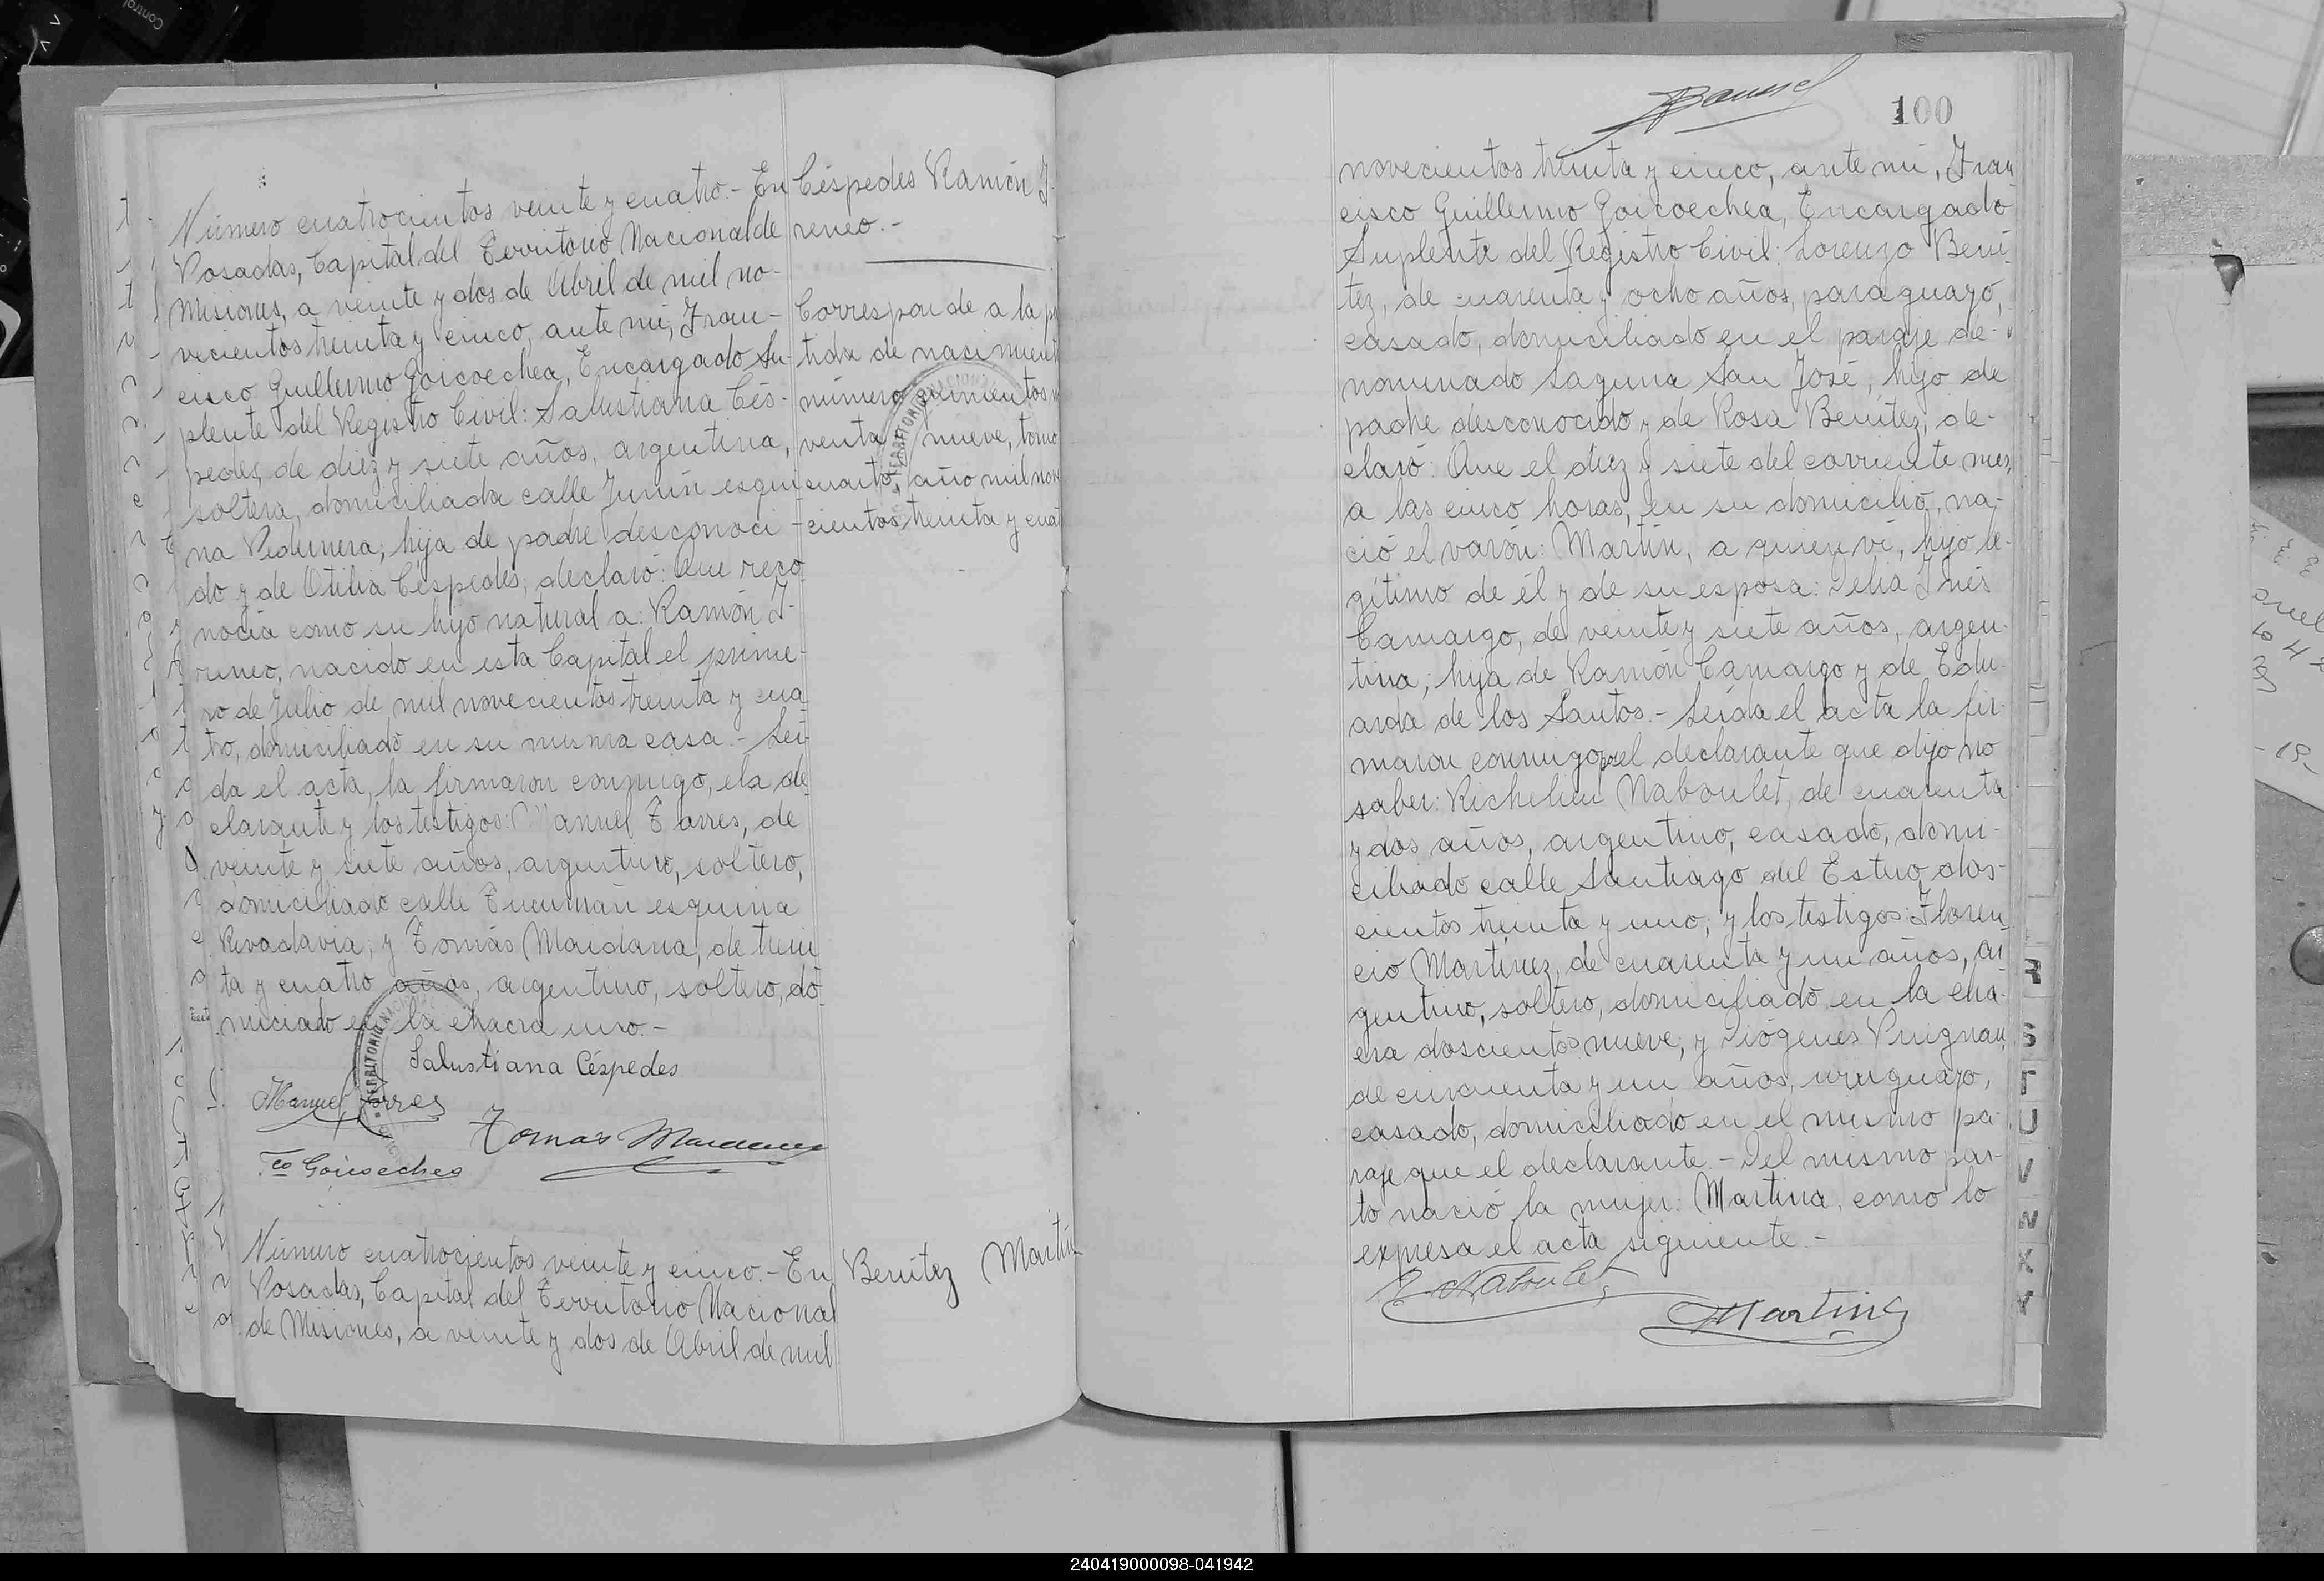 Número cuatrocientos veinte y cuatro.- En
Posadas, Capital del Territorio Nacional de
Misiones, a veinte y dos de Abril de mil no-
vecientos treinta y cinco, ante mi, Fran-
cisco Guillermo Goicoechea, Encargado Su-
plente del Registro Civil: Salustiana Cés-
pedes, de diez y siete años, argentina,
soltera, domiciliada calle Junín esqui
na Pedernera; hija de padre desconoci-
do y de Otilia Céspedes; declaró: Que reco
nocia como su hijo natural a: Ramón I-
rineo, nacido en esta Capital el prime-
ro de Julio de mil novecientos treinta y cua
tro, domiciliado en su misma casa.- Lei-
da el acta, la firmaron conmigo, ela de-
clarante y los testigos: Manuel Torres, de
veinte y siete años, argentino, soltero,
domiciliado calle Tucumán esquina
Rivadavia; y Tomás Maidana, de trein
ta y cuatro años, argentino, soltero, do-
miciado en la chacra uno.-
Salustiana Céspedes
Manuel Torres
Tomas Maidana
Fco Goicoechea
Céspedes Ramón I-
reneo.-
Corresponde a la pa
tida de nacimient
número quinientos n
venta y nueve, tomo
cuarto, año mil nov
cientos treinta y cuat
TERRITORIO NACIONAL
TERRITORIO NACIONAL
Número cuatrocientos veinte y cinco.- En
Posadas, Capital del Territorio Nacional
de Misiones, a veinte y dos de Abril de mil
Benítez Martín
100
novecientos treinta y cinco, ante mi, Fran
cisco Guillermo Goicoechea, Encargado
Suplente del Registro Civil: Lorenzo Bení
tez, de cuarenta y ocho años, paraguayo,
casado, domiciliado en el paraje de-
nominado Laguna San José, hijo de
padre desconocido y de Rosa Benítez; de-
claró: Que el diez y siete del corriente mes,
a las cinco horas, en su domicilio, na-
ció el varón: Martín, a quien ví, hijo le-
gítimo de él y de su esposa: Delia Inés
Camargo, de veinte y siete años, argen-
tina; hija de Ramón Camargo y de Edu-
arda de los Santos.- Leída el acta la fir-
maron conmigo, por el declarante que dijo no
saber: Richelieu Naboulet, de cuarenta
y dos años, argentino, casado, domi-
ciliado calle Santiago del Estero dos-
cientos treinta y uno; y los testigos: Floren
cio Martínez, de cuarenta y un años, ar
gentino, soltero, domiciliado en la cha-
cra doscientos nueve; y Diógenes Puignau,
de cincuenta y un años, uruguayo,
casado, domiciliado en el mismo pa-
raje que el declarante.- Del mismo par-
to nació la mujer: Martina, como lo
expresa el acta siguiente.-
R. Naboulet
R
S
T
U
V
W
X
Y
240419000098-041942